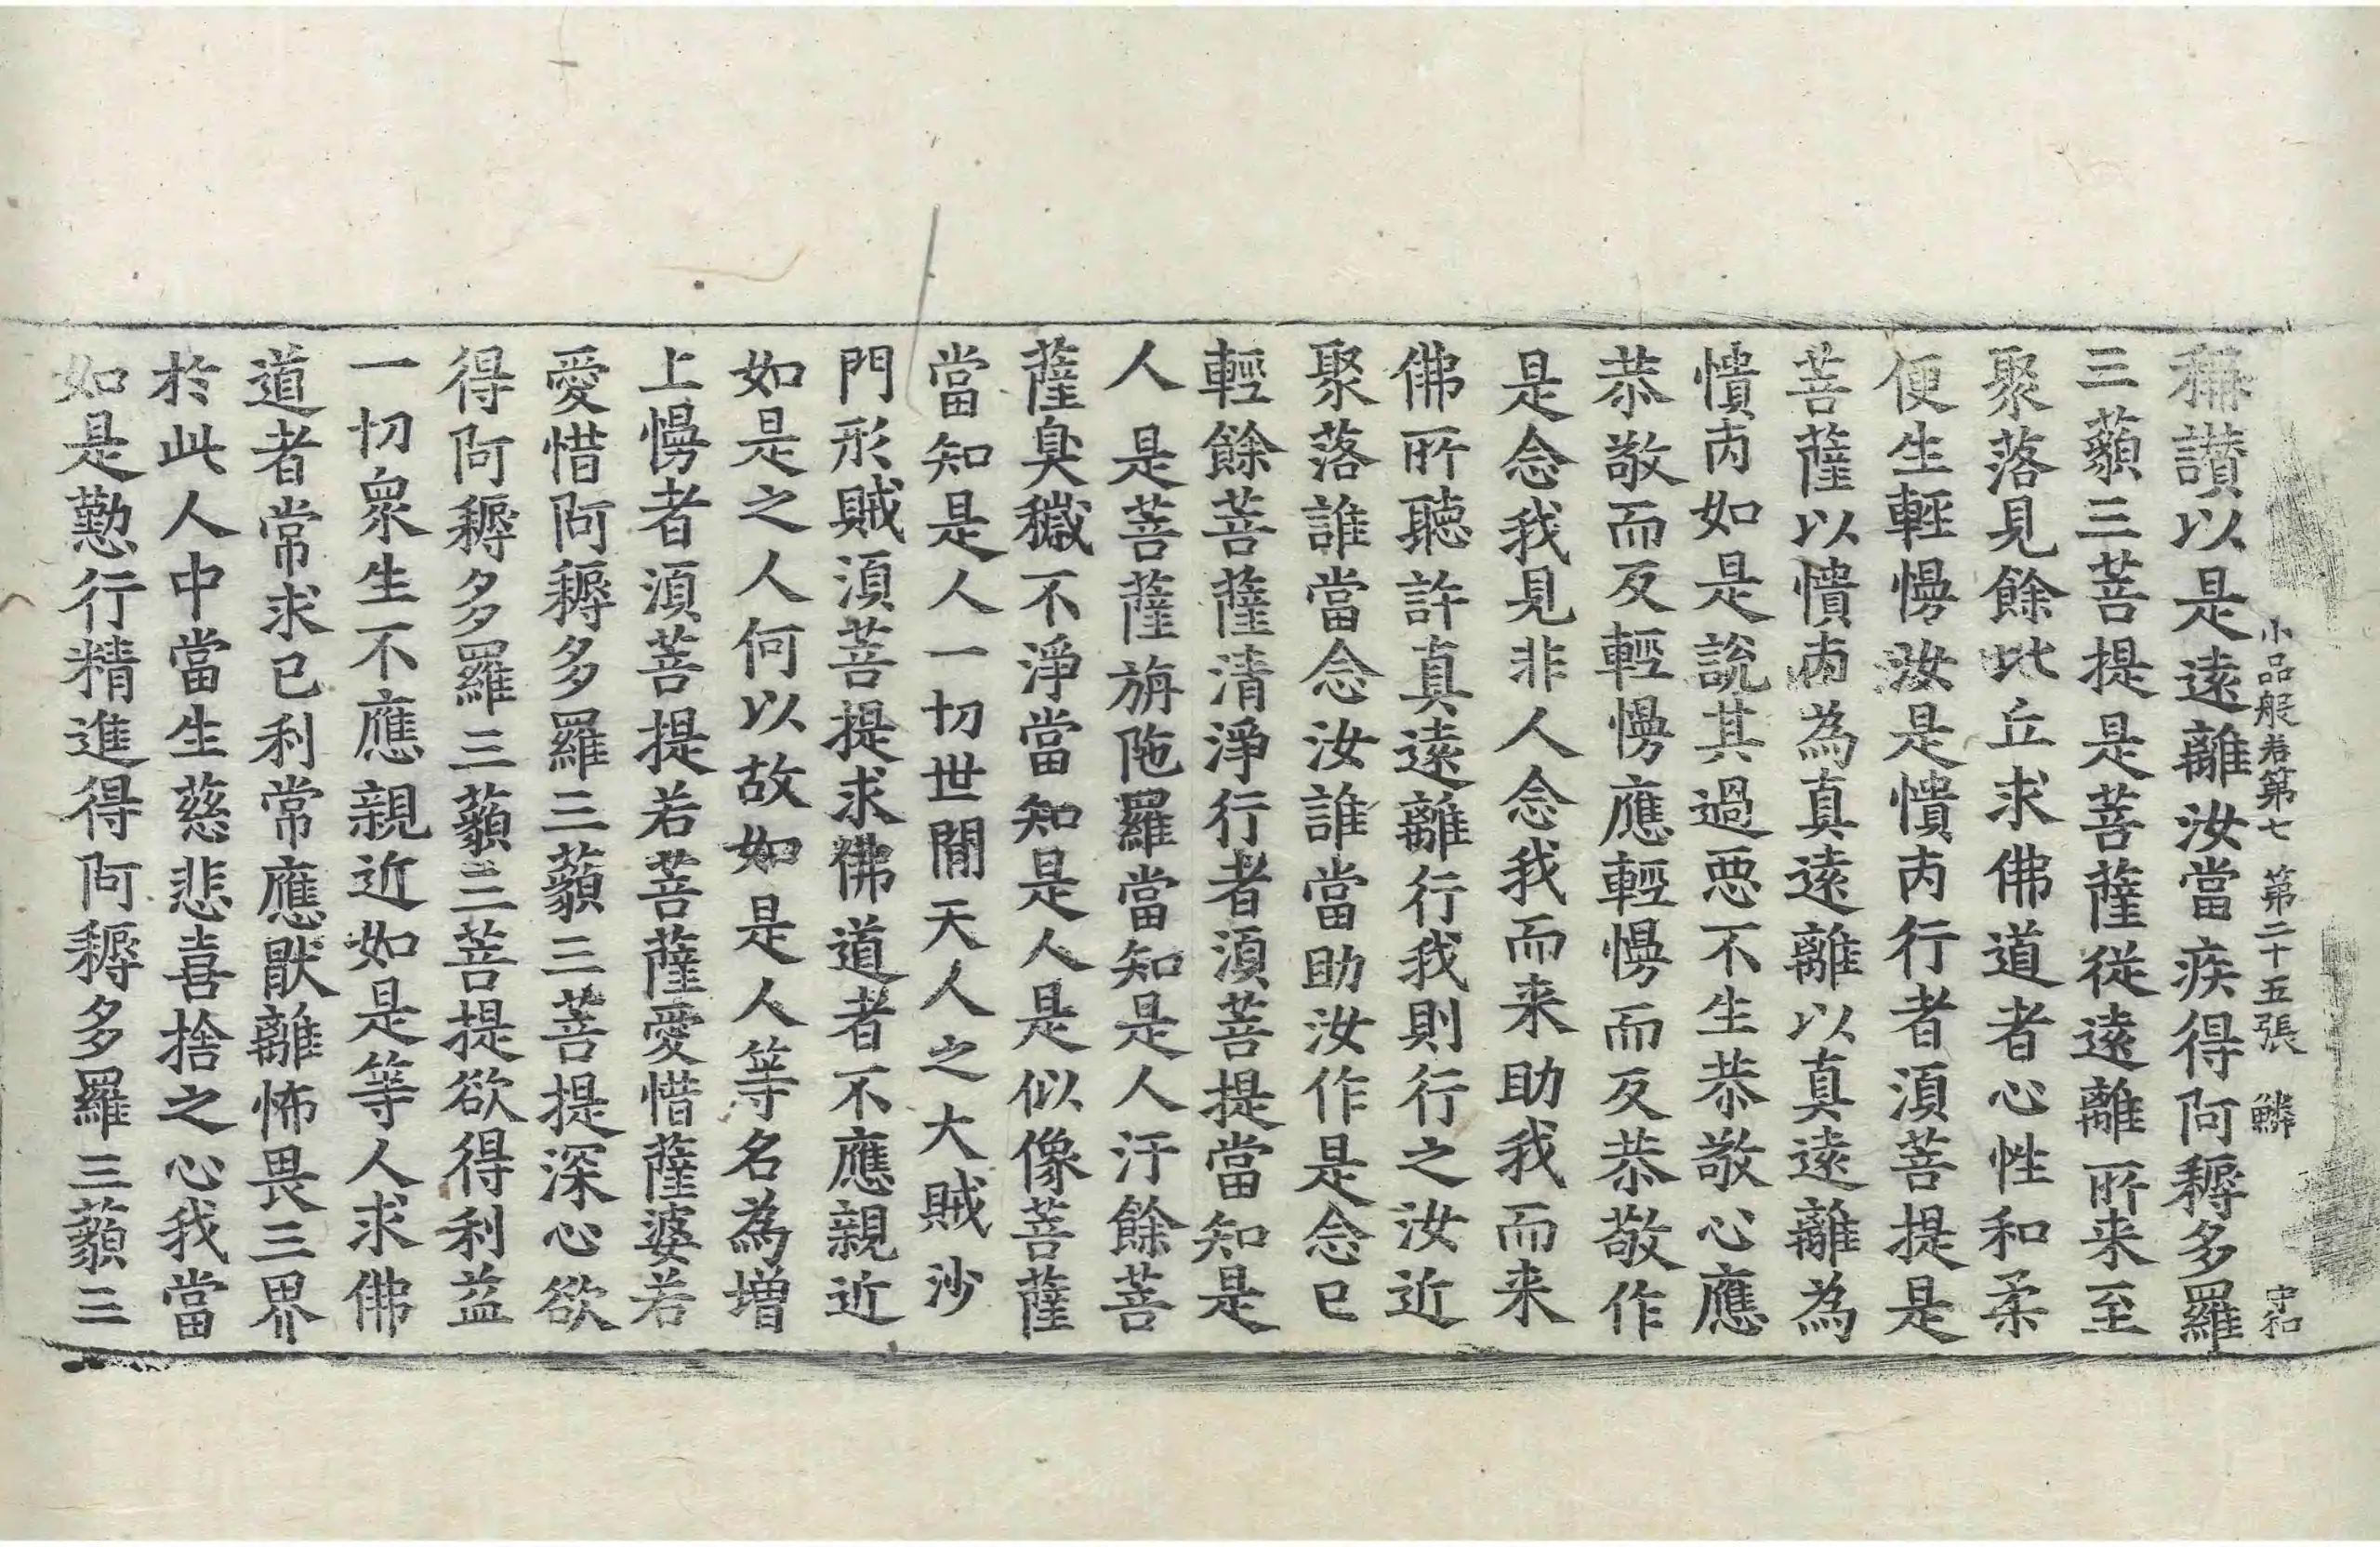 小品般若第七　第二十五張　鱗　守和
稱讃以是遠離汝當疾得阿耨多羅
三藐三菩提是菩薩從遠離所来至
聚落見餘比丘求佛道者心性和柔
便生輕慢汝是憒丙行者湏菩提是
菩薩以憒丙為真遠離以真遠離為
憒丙如是說其過惡不生恭敬心應
恭敬而反輕慢應輕慢而反恭敬作
是念我見非人念我而来助我而来
佛所聽許真遠離行我則行之汝近
聚落誰當念汝誰當助汝作是念已
輕餘菩薩清淨行者湏菩提當知是
人是菩薩旃陁羅當知是人汙餘菩
薩臭穢不淨當知是人是似像菩薩
當知是人一切世間天人之大賊沙
門形賊湏菩提求佛道者不應親近
如是之人何以故如是人等名為增
上慢者湏菩提若菩薩愛惜薩婆若
愛惜阿耨多羅三藐三菩提深心欲
得阿耨多羅三藐三菩提欲得利益
一切衆生不應親近如是等人求佛
道者常求已利常應猒離怖畏三界
於此人中當生慈悲喜捨之心我當
如是勤行精進得阿耨多羅三藐三